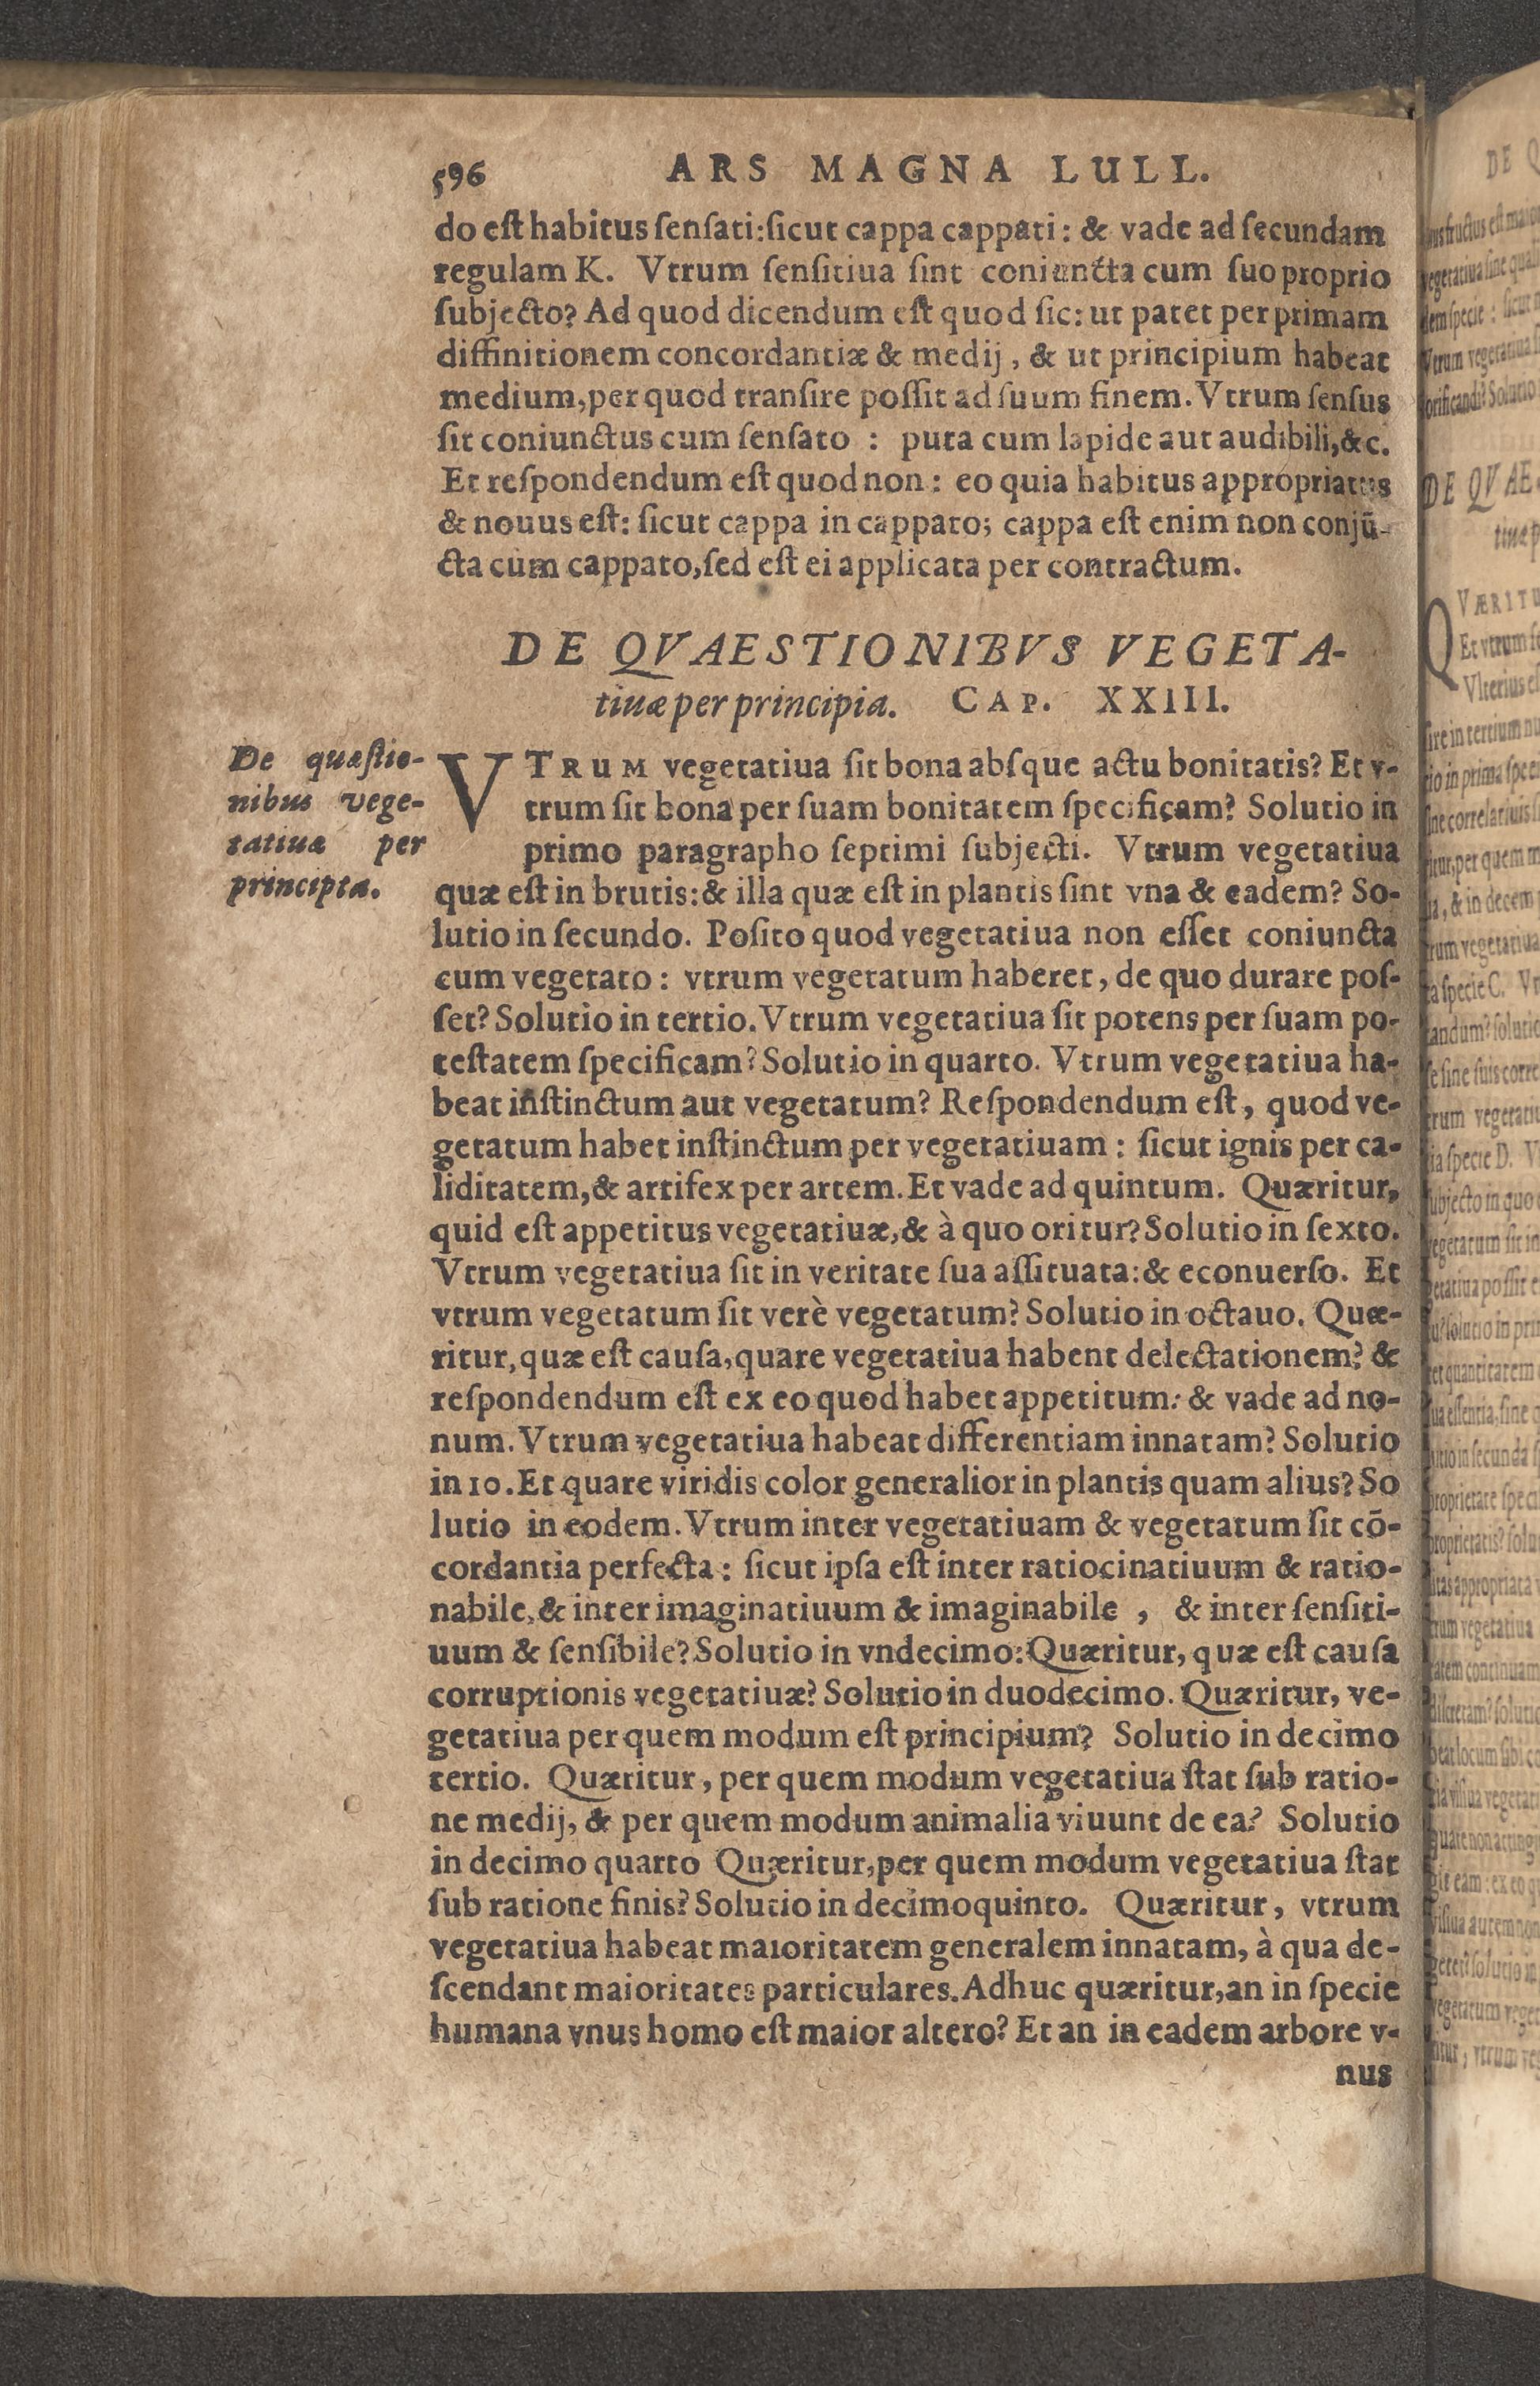 596 ARS MAGNA LULL.
do eſt habitus ſenſati:ſicut cappa cappati: & vade ad ſecundam
regulam K. Vtrum ſenſitiua ſint coniuncta cum ſuo proprio
ſubjecto? Ad quod dicendum eſt quod ſic: ut patet per primam
diffinitionem concordantiæ & medij, & ut principium habeat
medium,per quod tranſire poſſit ad ſuum finem. Vtrum ſenſus
ſit coniunctus cum ſenſato : puta cum lapide aut audibili,&c.
Et reſpondendum eſt quod non: eo quia habitus appropriatus
& nouus eſt: ſicut cappa in cappato; cappa eſt enim non conjū-
cta cum cappato,ſed eſt ei applicata per contractum.
DE QVAESTIONIBVS VEGETA-
tiuæ per principia. CAP. XXIII.
De quæſtio-
nibus vege-
tatiuæ per
principia.
VTRUM vegetatiua ſit bona abſque actu bonitatis? Et v-
trum ſit bona per ſuam bonitatem ſpecificam? Solutio in
primo paragrapho ſeptimi ſubjecti. Vtrum vegetatiua
quæ eſt in brutis:& illa quæ eſt in plantis ſint vna & eadem? So-
lutio in ſecundo. Poſito quod vegetatiua non eſſet coniuncta
cum vegetato: vtrum vegetatum haberet, de quo durare poſ-
ſet? Solutio in tertio. Vtrum vegetatiua ſit potens per ſuam po-
teſtatem ſpecificam? Solutio in quarto. Vtrum vegetatiua ha-
beat inſtinctum aut vegetatum? Reſpondendum eſt, quod ve-
getatum habet inſtinctum per vegetatiuam: ſicut ignis per ca-
liditatem,& artifex per artem. Et vade ad quintum. Quæritur,
quid eſt appetitus vegetatiuæ,& à quo oritur? Solutio in ſexto.
Vtrum vegetatiua ſit in veritate ſua aſſituata:& econuerſo. Et
vtrum vegetatum ſit verè vegetatum? Solutio in octauo. Quæ-
ritur,quæ eſt cauſa,quare vegetatiua habent delectationem? &
reſpondendum eſt ex eo quod habet appetitum: & vade ad no-
num. Vtrum vegetatiua habeat differentiam innatam? Solutio
in 10. Et quare viridis color generalior in plantis quam alius? So
lutio in eodem. Vtrum inter vegetatiuam & vegetatum ſit cō-
cordantia perfecta: ſicut ipſa eſt inter ratiocinatiuum & ratio-
nabile,& inter imaginatiuum & imaginabile , & inter ſenſiti-
uum & ſenſibile? Solutio in vndecimo:Quæritur, quæ eſt cauſa
corruptionis vegetatiuæ? Solutio in duodecimo. Quæritur, ve-
getatiua per quem modum eſt principium? Solutio in decimo
tertio. Quæritur, per quem modum vegetatiua ſtat ſub ratio-
ne medij, & per quem modum animalia viuunt de ea? Solutio
in decimo quarto Quæritur,per quem modum vegetatiua ſtat
ſub ratione finis? Solutio in decimoquinto. Quæritur, vtrum
vegetatiua habeat maioritatem generalem innatam, à qua de-
ſcendant maioritates particulares. Adhuc quæritur,an in ſpecie
humana vnus homo eſt maior altero? Et an in eadem arbore v-
nus